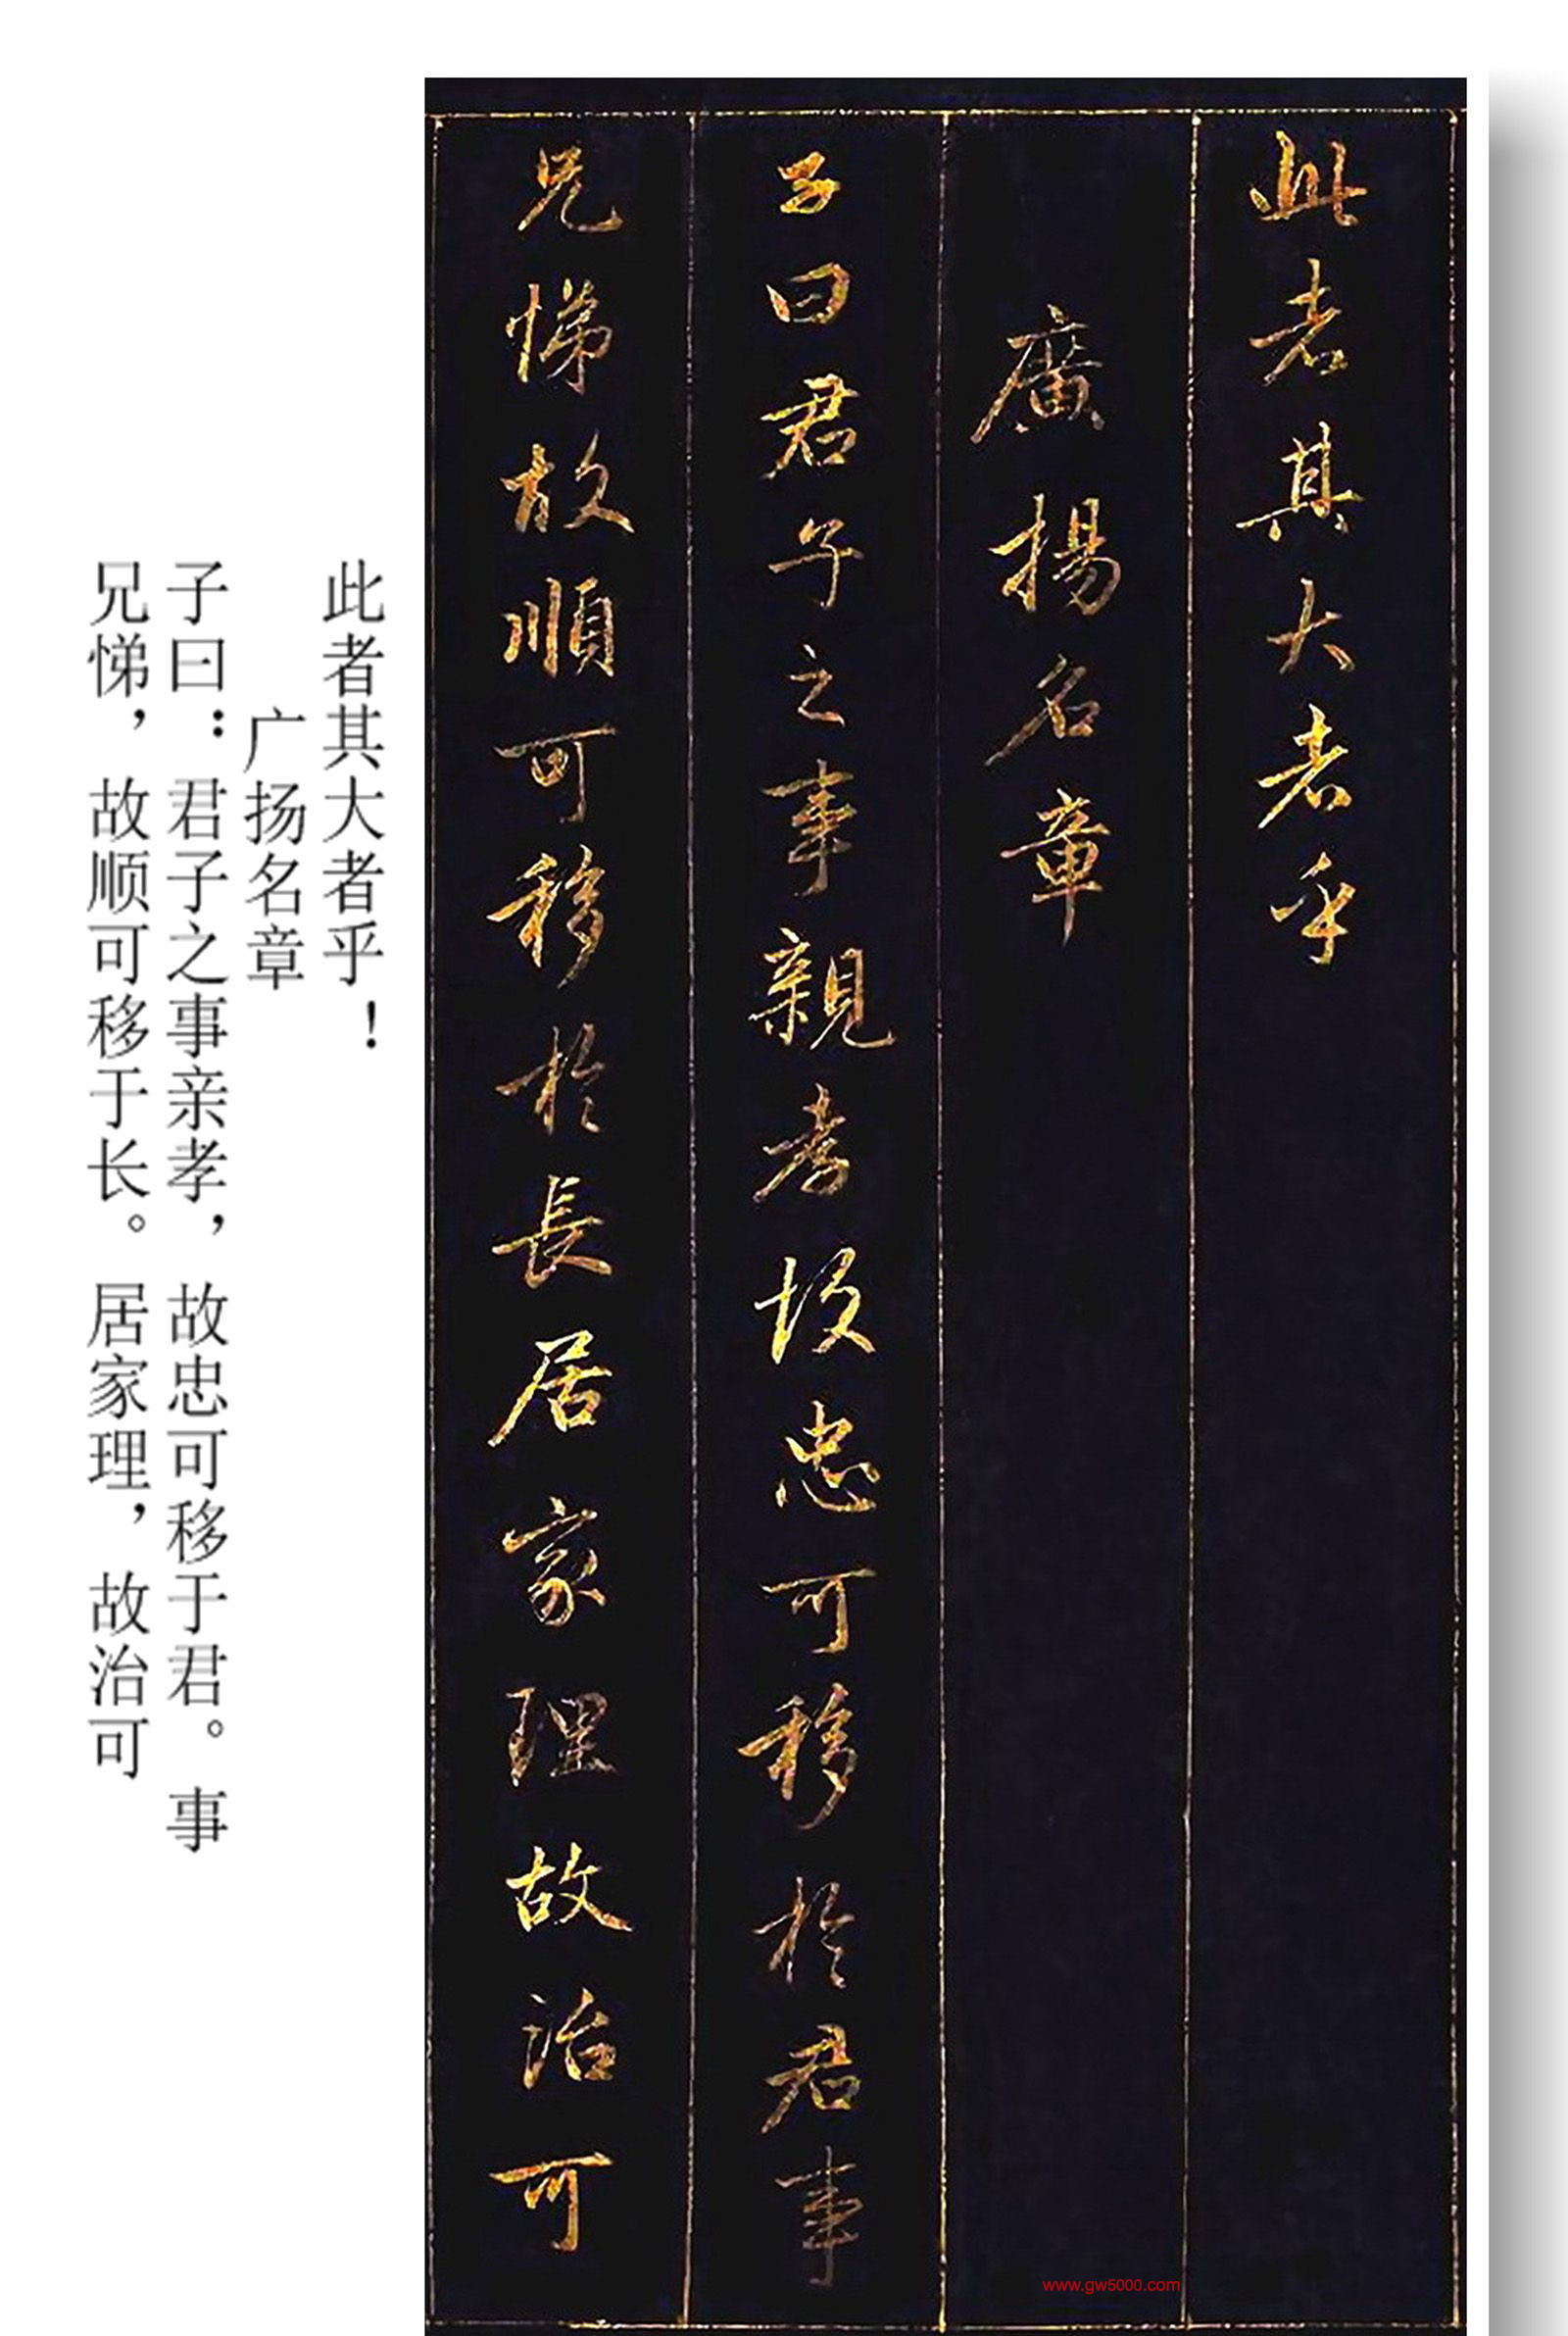 此者其大者乎
廣揚名章
子曰君子之事親孝故忠可移於君事
兄悌故順可移於長居家理故治可
此者其大者乎！
广扬名章
子曰：君子之事亲孝，故忠可移于君。事
兄悌，故顺可移于长。居家理，故治可
www.gw5000.com